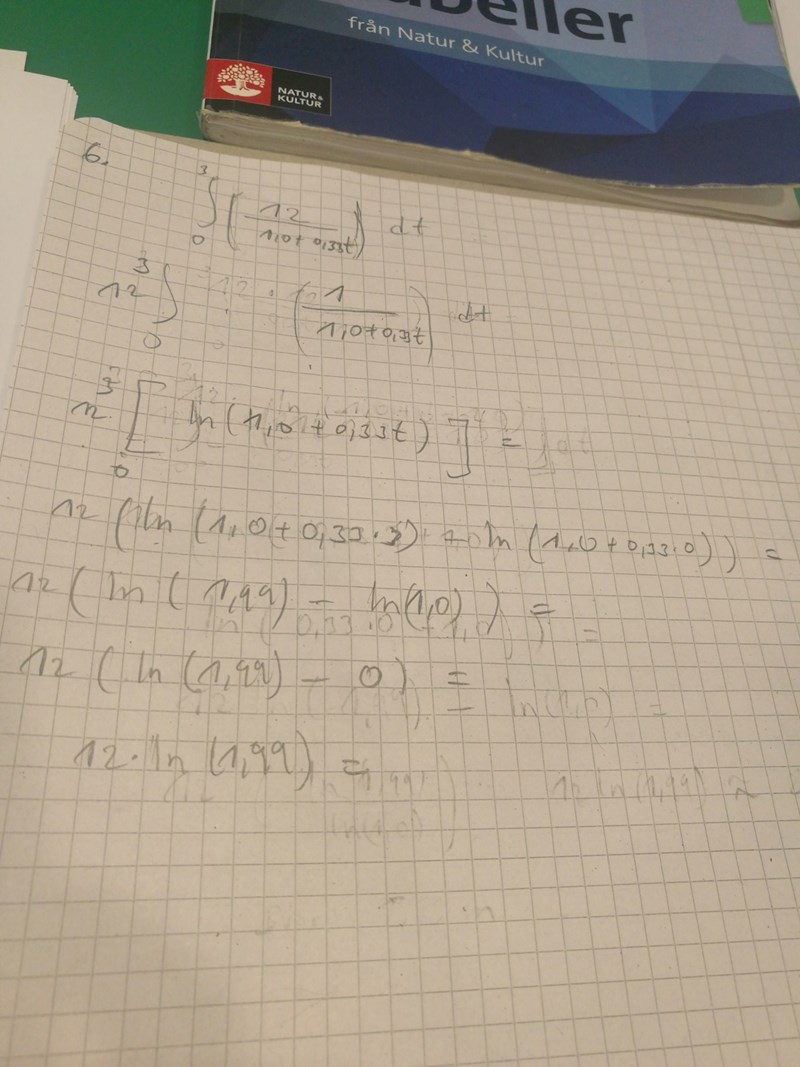 abeller
från Natur & Kultur
NATUR &
KULTUR
6.
3
∫ ( 12 / 1,0 + 0,33t ) dt
0
3
12 ∫ ( 1 / 1,0 + 0,33t ) dt
0
3
12 [ ln (1,0 + 0,33t) ] =
0
12 ( ln (1,0 + 0,33·3) - ln (1,0 + 0,33·0)) =
12 ( ln (1,99) - ln(1,0) ) =
12 ( ln (1,99) - 0) =
12·ln (1,99) =